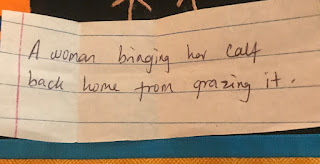 A woman bringing her calf
back home from grazing it.